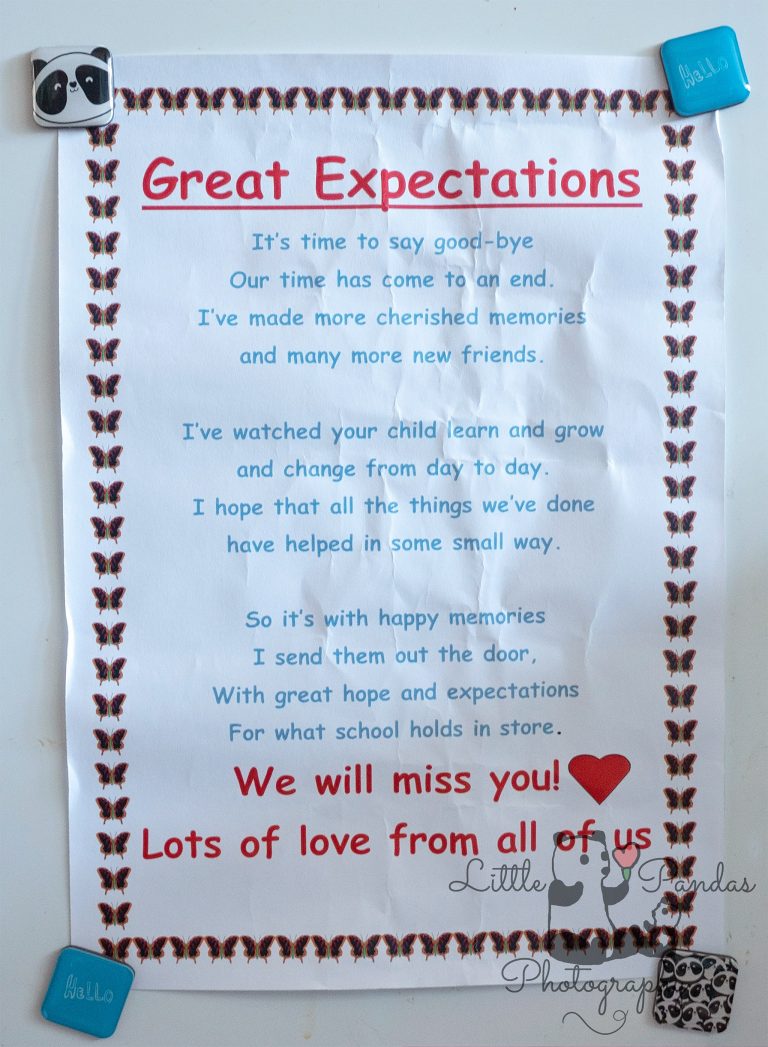 HELLO
Great Expectations
It's time to say good-bye
Our time has come to an end.
I've made more cherished memories
and many more new friends.
I've watched your child learn and grow
and change from day to day.
I hope that all the things we've done
have helped in some small way.
So it's with happy memories
I send them out the door,
With great hope and expectations
For what school holds in store.
We will miss you!
Lots of love from all of us
Little Pandas
HELLO